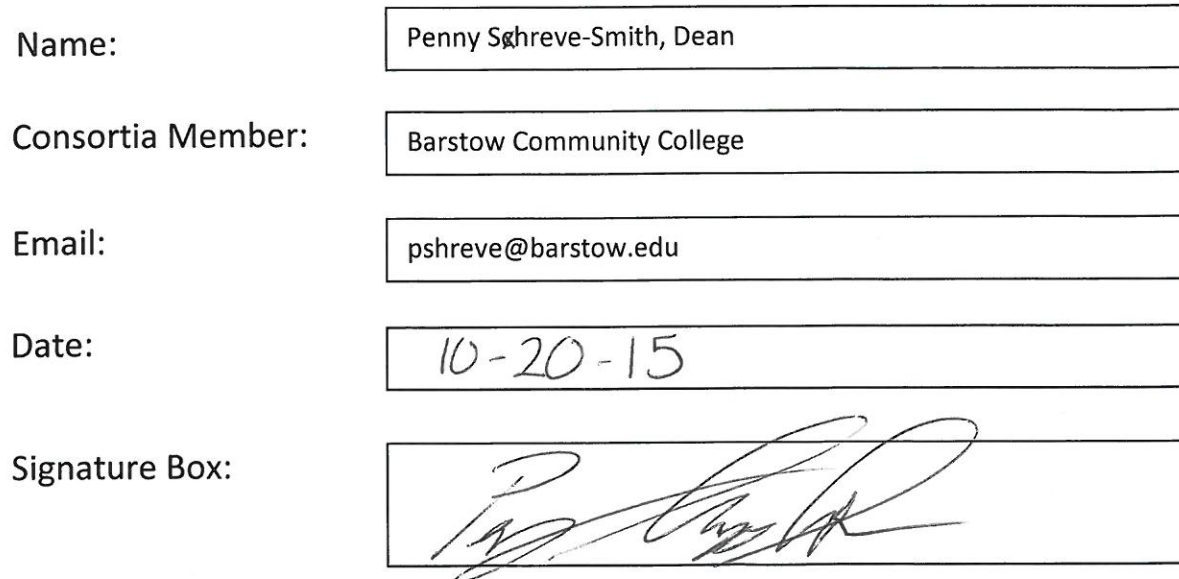 Name:
Penny Schreve-Smith, Dean
Consortia Member:
Barstow Community College
Email:
pshreve@barstow.edu
Date:
10-20-15
Signature Box: